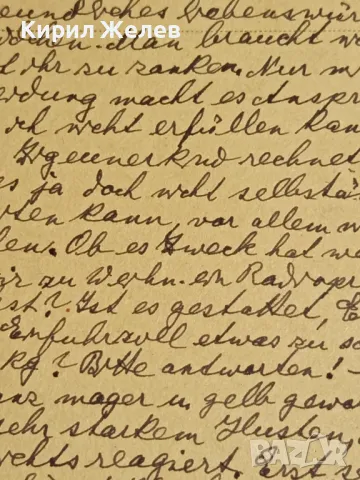 Кирил Желев
eundliches Liebenswür
Man braucht
ihr zu zanken. Nur m
eidung macht es Anspr
ich nicht erfüllen kan
Zigeunerkind rechnet
es ja doch nicht selbstä
ten kann, vor allem
en. Ob es Zweck hat
zu Weihn. ein
st? Ist es gestattet,
Einfuhrzoll etwas zu
kg? Bitte antworten! -
anz mager u. gelb gewo
sehr starkem Husten,
ichts reagiert. erst
BAZAR